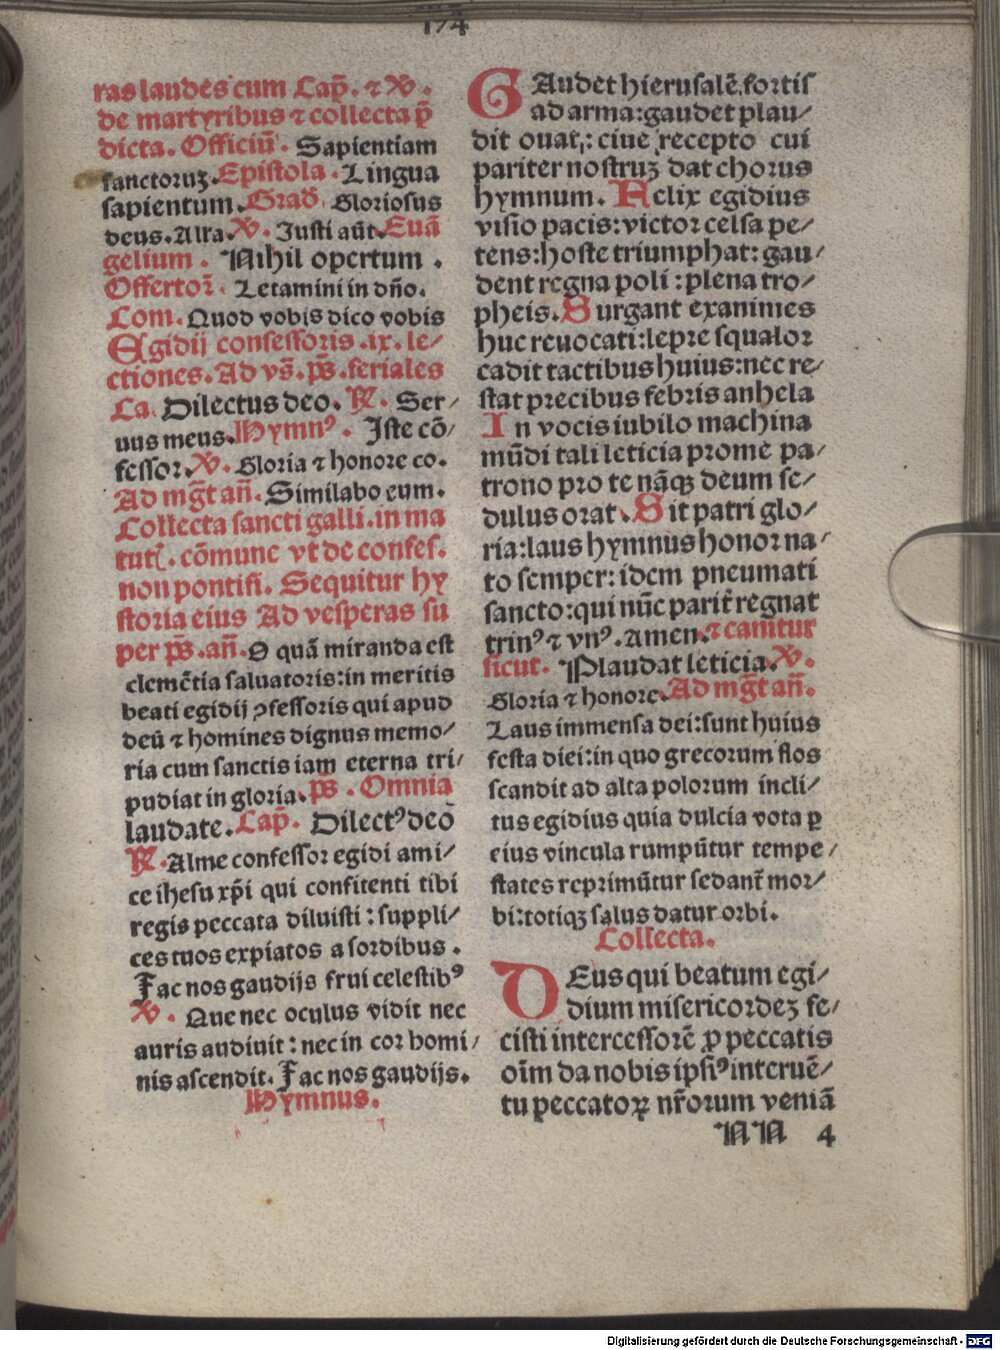 174
ras laudes cum Cap̃. ⁊ V̷.
de martyribus ⁊ collecta p̃
dicta. Officiũ. Sapientiam
sanctoruꝫ. Epistola. Lingua
sapientum. Grad̃. Gloriosus
deus. Alľa. V̷. Justi aũt. Euã
gelium. Nihil opertum.
Offertor̃. Letamini in dño.
Com. Quod vobis dico vobis
Egidij confessoris .ix. le/
ctiones. Ad vs̃. ps̃. feriales
Ca. Dilectus deo. R̷. Ser/
uus meus. Hymnꝰ. Iste cõ/
fessor. V̷. Gloria ⁊ honore co.
Ad mg̃t añ. Similabo eum.
Collecta sancti galli. in ma
tut̃. cõmune vt de confes.
non pontifi. Sequitur hy
storia eius Ad vesperas su
per ps̃. añ. O quã miranda est
clemẽtia saluatoris: in meritis
beati egidij ꝯfessoris qui apud
deũ ⁊ homines dignus memo/
ria cum sanctis iam eterna tri/
pudiat in gloria. ps̃. Omnia
laudate. Cap̃. Dilectꝰ deo
R̷. Alme confessor egidi ami/
ce ihesu xp̃i qui confitenti tibi
regis peccata diluisti: suppli/
ces tuos expiatos a sordibus.
Fac nos gaudijs frui celestibꝰ
V̷. Que nec oculus vidit nec
auris audiuit: nec in cor homi/
nis ascendit. Fac nos gaudijs.
Hymnus.
GAudet hierusalẽ, fortis
ad arma: gaudet plau/
dit ouat,: ciue recepto cui
pariter nostruꝫ dat chorus
hymnum. Felix egidius
visio pacis: victor celsa pe/
tens: hoste triumphat: gau/
dent regna poli: plena tro/
pheis. Surgant exanimes
huc reuocati: lepre squalor
cadit tactibus huius: nec re/
stat precibus febris anhela
In vocis iubilo machina
mũdi tali leticia prome pa/
trono pro te nãqꝫ deum se/
dulus orat. Sit patri glo/
ria: laus hymnus honor na/
to semper: idem pneumati
sancto: qui nũc parit̃ regnat
trinꝰ ⁊ vnꝰ. Amen. ⁊ canitur
sicut. Plaudat leticia. V̷.
Gloria ⁊ honore. Ad mg̃t añ.
Laus immensa dei: sunt huius
festa diei: in quo grecorum flos
scandit ad alta polorum incli/
tus egidius quia dulcia vota ꝑ
eius vincula rumpũtur tempe/
states reprimũtur sedant̃ mor/
bi: totiqꝫ salus datur orbi.
Collecta.
DEus qui beatum egi/
dium misericordeꝫ fe/
cisti intercessorẽ ꝓ peccatis
oĩm da nobis ipsiꝰ interuẽ/
tu peccatoꝝ nr̃orum veniã
NN 4
Digitalisierung gefördert durch die Deutsche Forschungsgemeinschaft - DFG